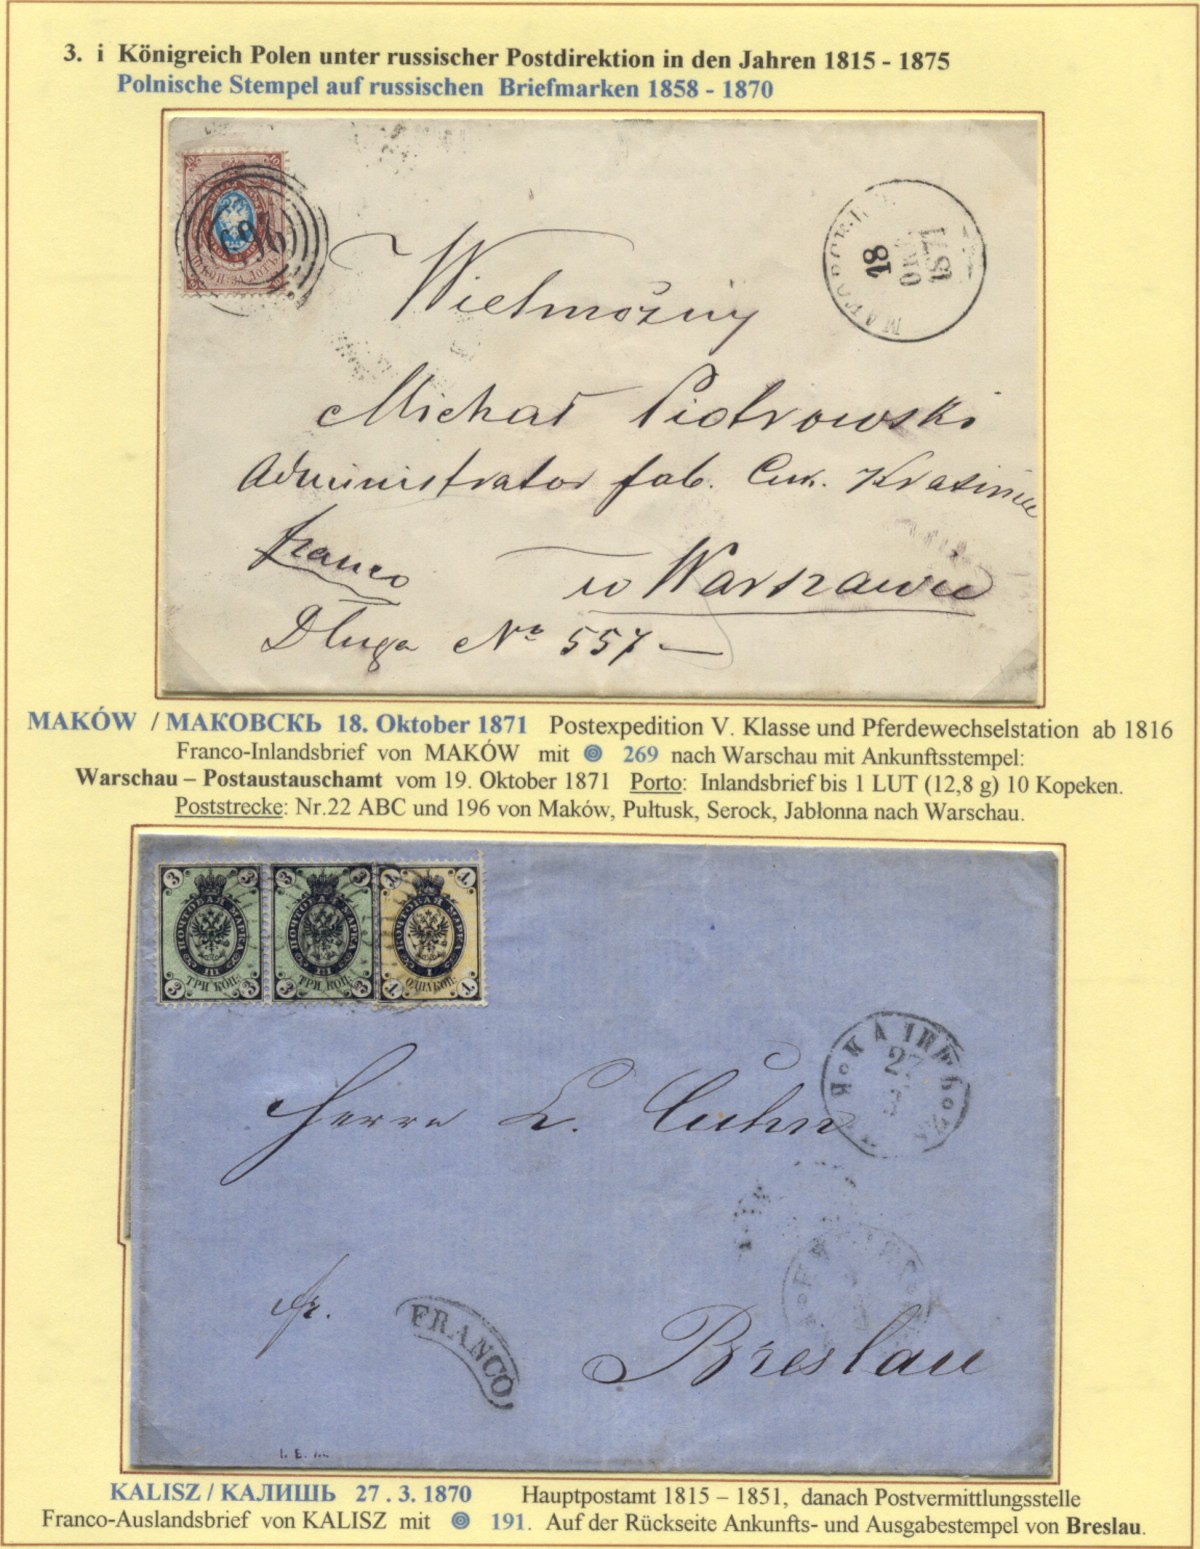 3. i Königreich Polen unter russischer Postdirektion in den Jahren 1815 - 1875
Polnische Stempel auf russischen Briefmarken 1858 - 1870
18
1871
Wielmożny
Michał Piotrowski
Administrator fab. Cuk.
franco
w Warszawie
Długa No 557 —
MAKÓW / МАКОВСКЬ 18. Oktober 1871 Postexpedition V. Klasse und Pferdewechselstation ab 1816
Franco-Inlandsbrief von MAKÓW mit 269 nach Warschau mit Ankunftsstempel:
Warschau – Postaustauschamt vom 19. Oktober 1871 Porto: Inlandsbrief bis 1 LUT (12,8 g) 10 Kopeken.
Poststrecke: Nr.22 ABC und 196 von Maków, Pułtusk, Serock, Jabłonna nach Warschau.
3 3 3 3 1 1
ПОЧТОВАЯ МАРКА ПОЧТОВАЯ МАРКА ПОЧТОВАЯ МАРКА
III III I
ТРИ КОП. ТРИ КОП. ОДНА КОП.
3 3 3 3 1 1
27
Herrn L. Cuhn
fr.
FRANCO
Breslau
KALISZ / КАЛИШЬ 27 . 3. 1870 Hauptpostamt 1815 – 1851, danach Postvermittlungsstelle
Franco-Auslandsbrief von KALISZ mit 191. Auf der Rückseite Ankunfts- und Ausgabestempel von Breslau.